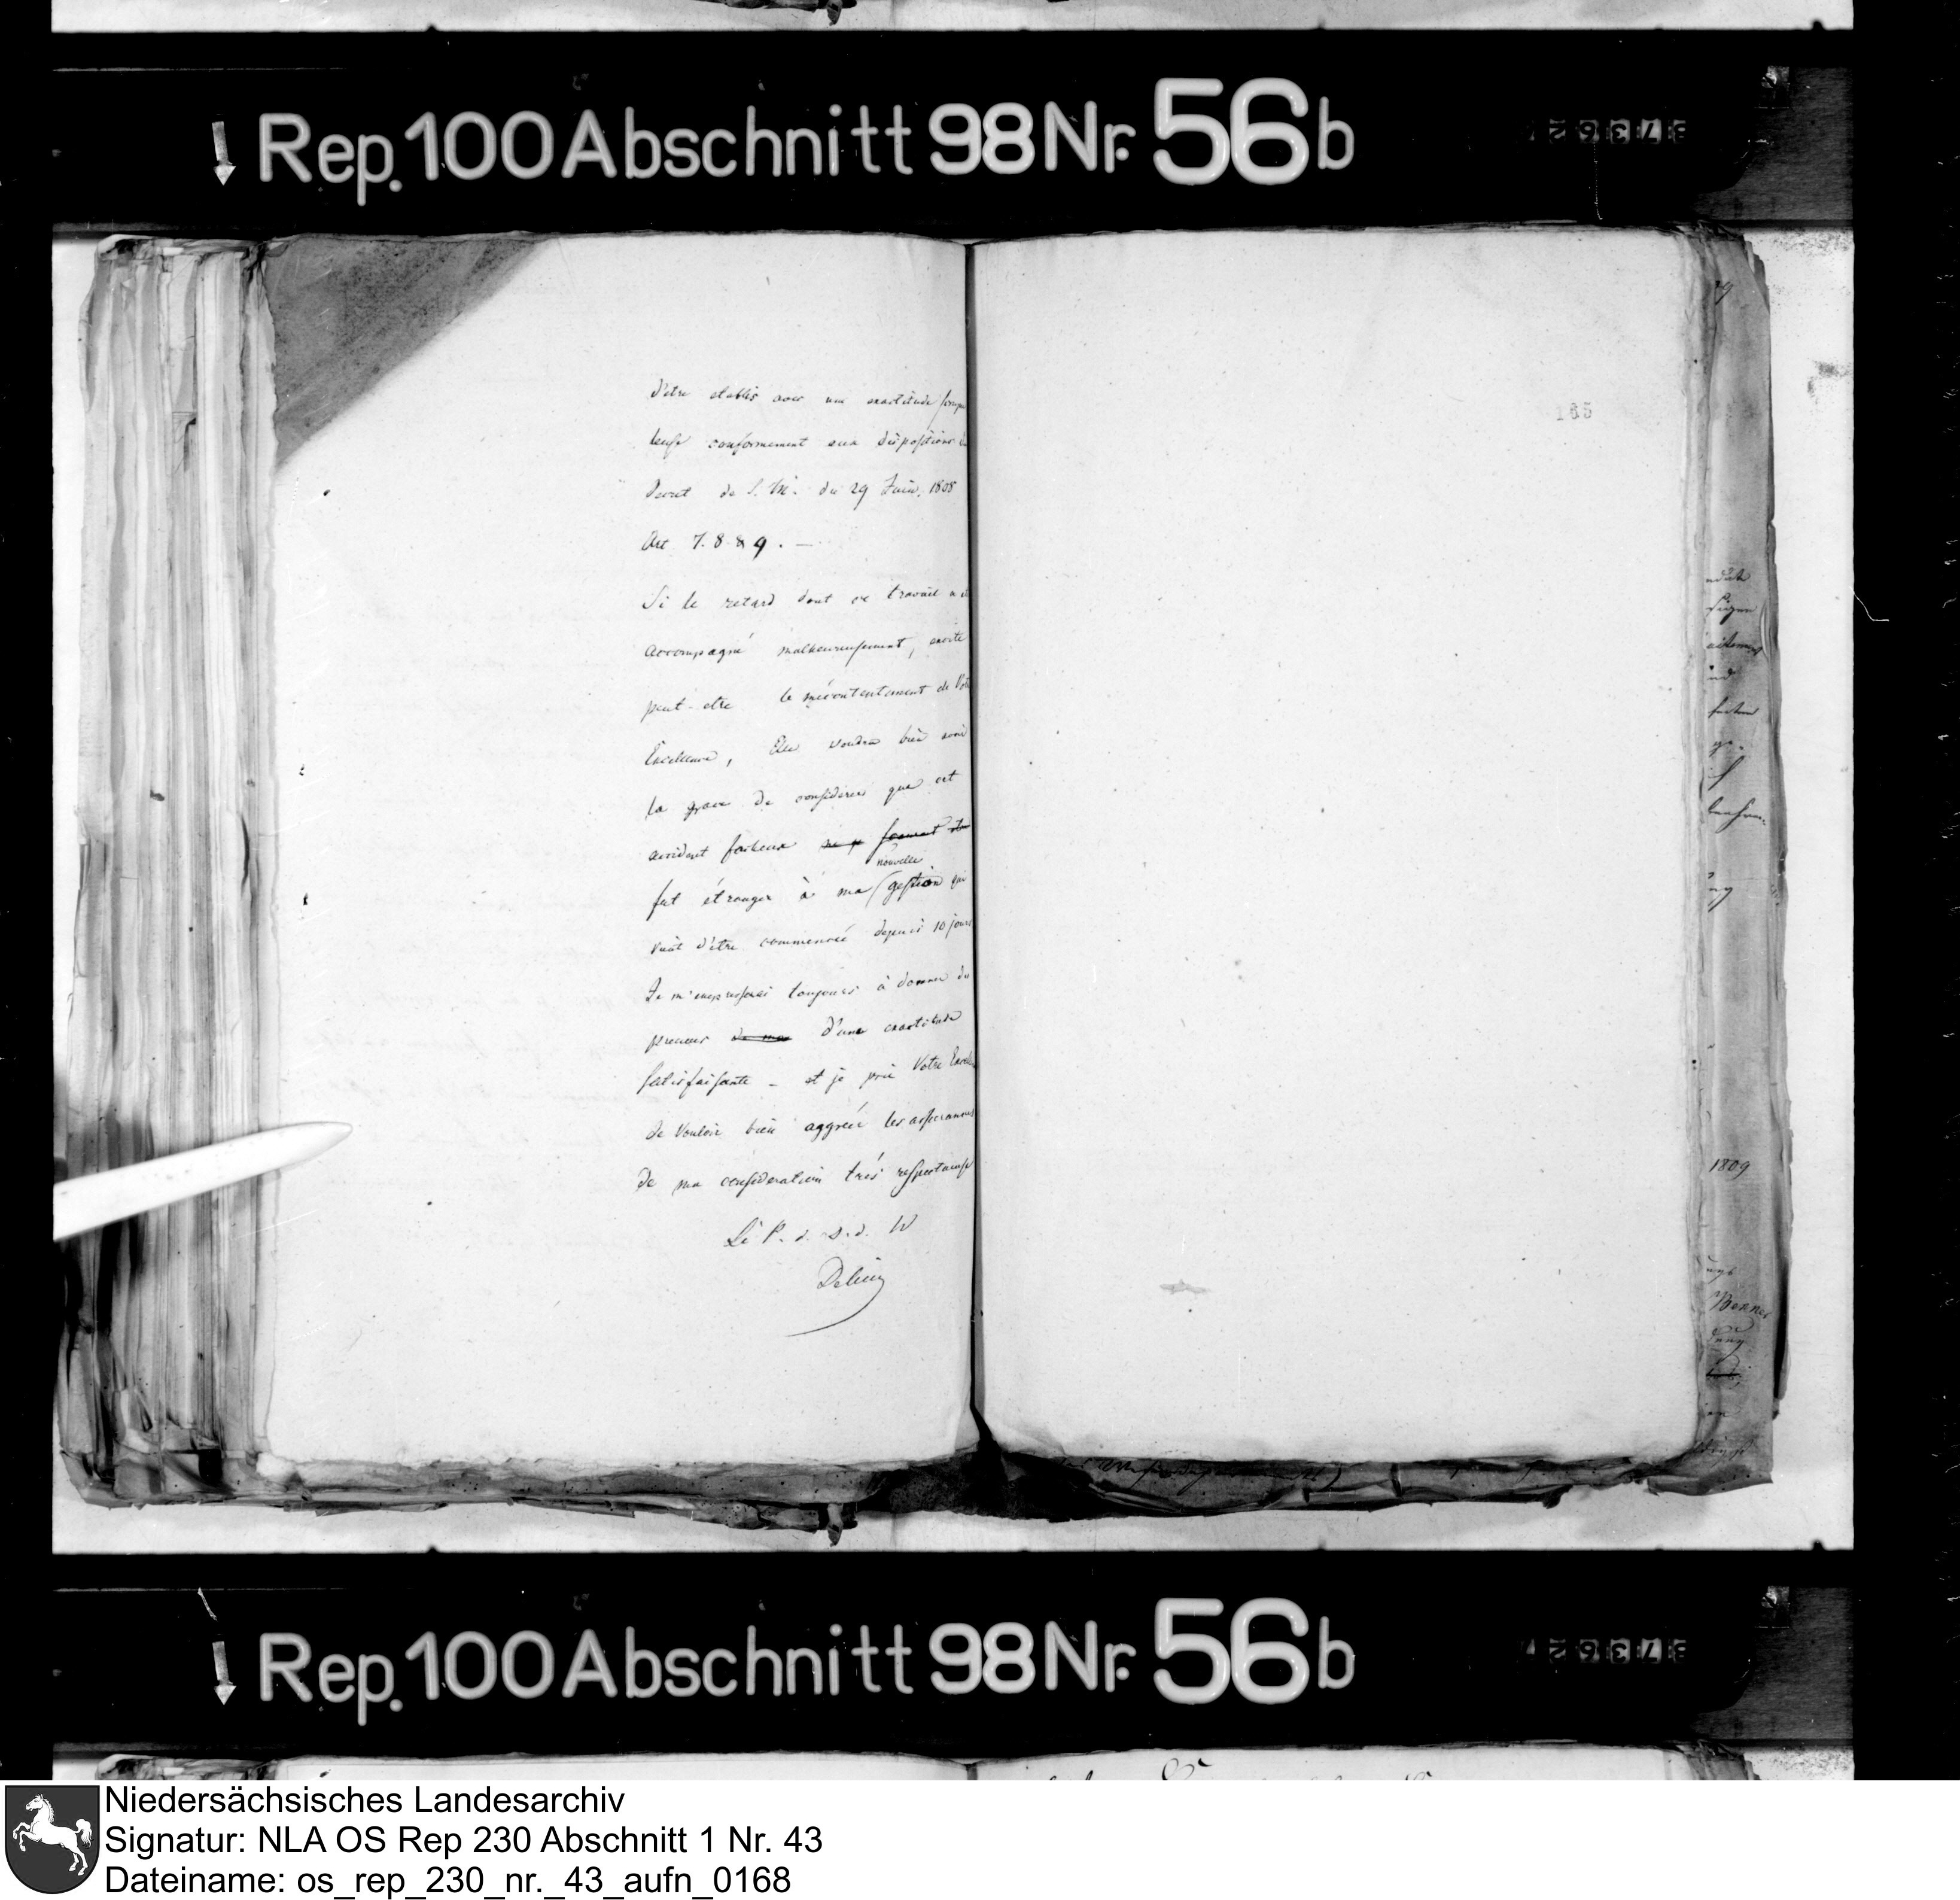 Rep. 100 Abschnitt 98 Nr. 56b
d'etre etablis avec une exactitude scrupu
leuse conformement aux dispositions du
decret de S. M. du 29 Juin. 1808
Art 7. 8 & 9. —
Si le retard dont ce travail a é
accompagné malheureusement, excite
peut-etre le mécontentement de Vot
Excellence, Elle voudra bien avoir
la grace de considerer que cet
accident facheux
nouvelle
fut étranger à ma gestion qui
vient d'être commencée depuis 10 jours
Je m'empresserai toujours à donner des
preuves de ma d'une exactitude
satisfaisante - et je prie Votre Excell
de vouloir bien aggréer les assurances
de ma consideration trés respectueuse
Le P. d. S. d. W
185
1809
Rep. 100 Abschnitt 98 Nr. 56b
Niedersächsisches Landesarchiv
Signatur: NLA OS Rep 230 Abschnitt 1 Nr. 43
Dateiname: os_rep_230_nr._43_aufn_0168